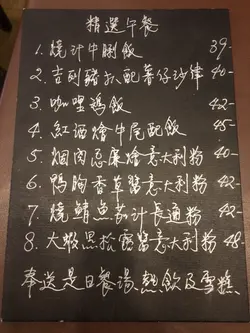 精選午餐
1. 燒汁牛脷飯 39-
2. 吉列豬扒配薯仔沙律 40-
3. 咖喱鸡飯 42-
4. 紅酒燴牛尾配飯 45-
5. 烟肉忌廉燴意大利粉 40-
6. 鴨胸香草醬意大利粉 42-
7. 燒鯖魚茄汁長通粉 42-
8. 大蝦黑松露醬意大利粉 48-
奉送是日餐湯、熱飲及雪糕